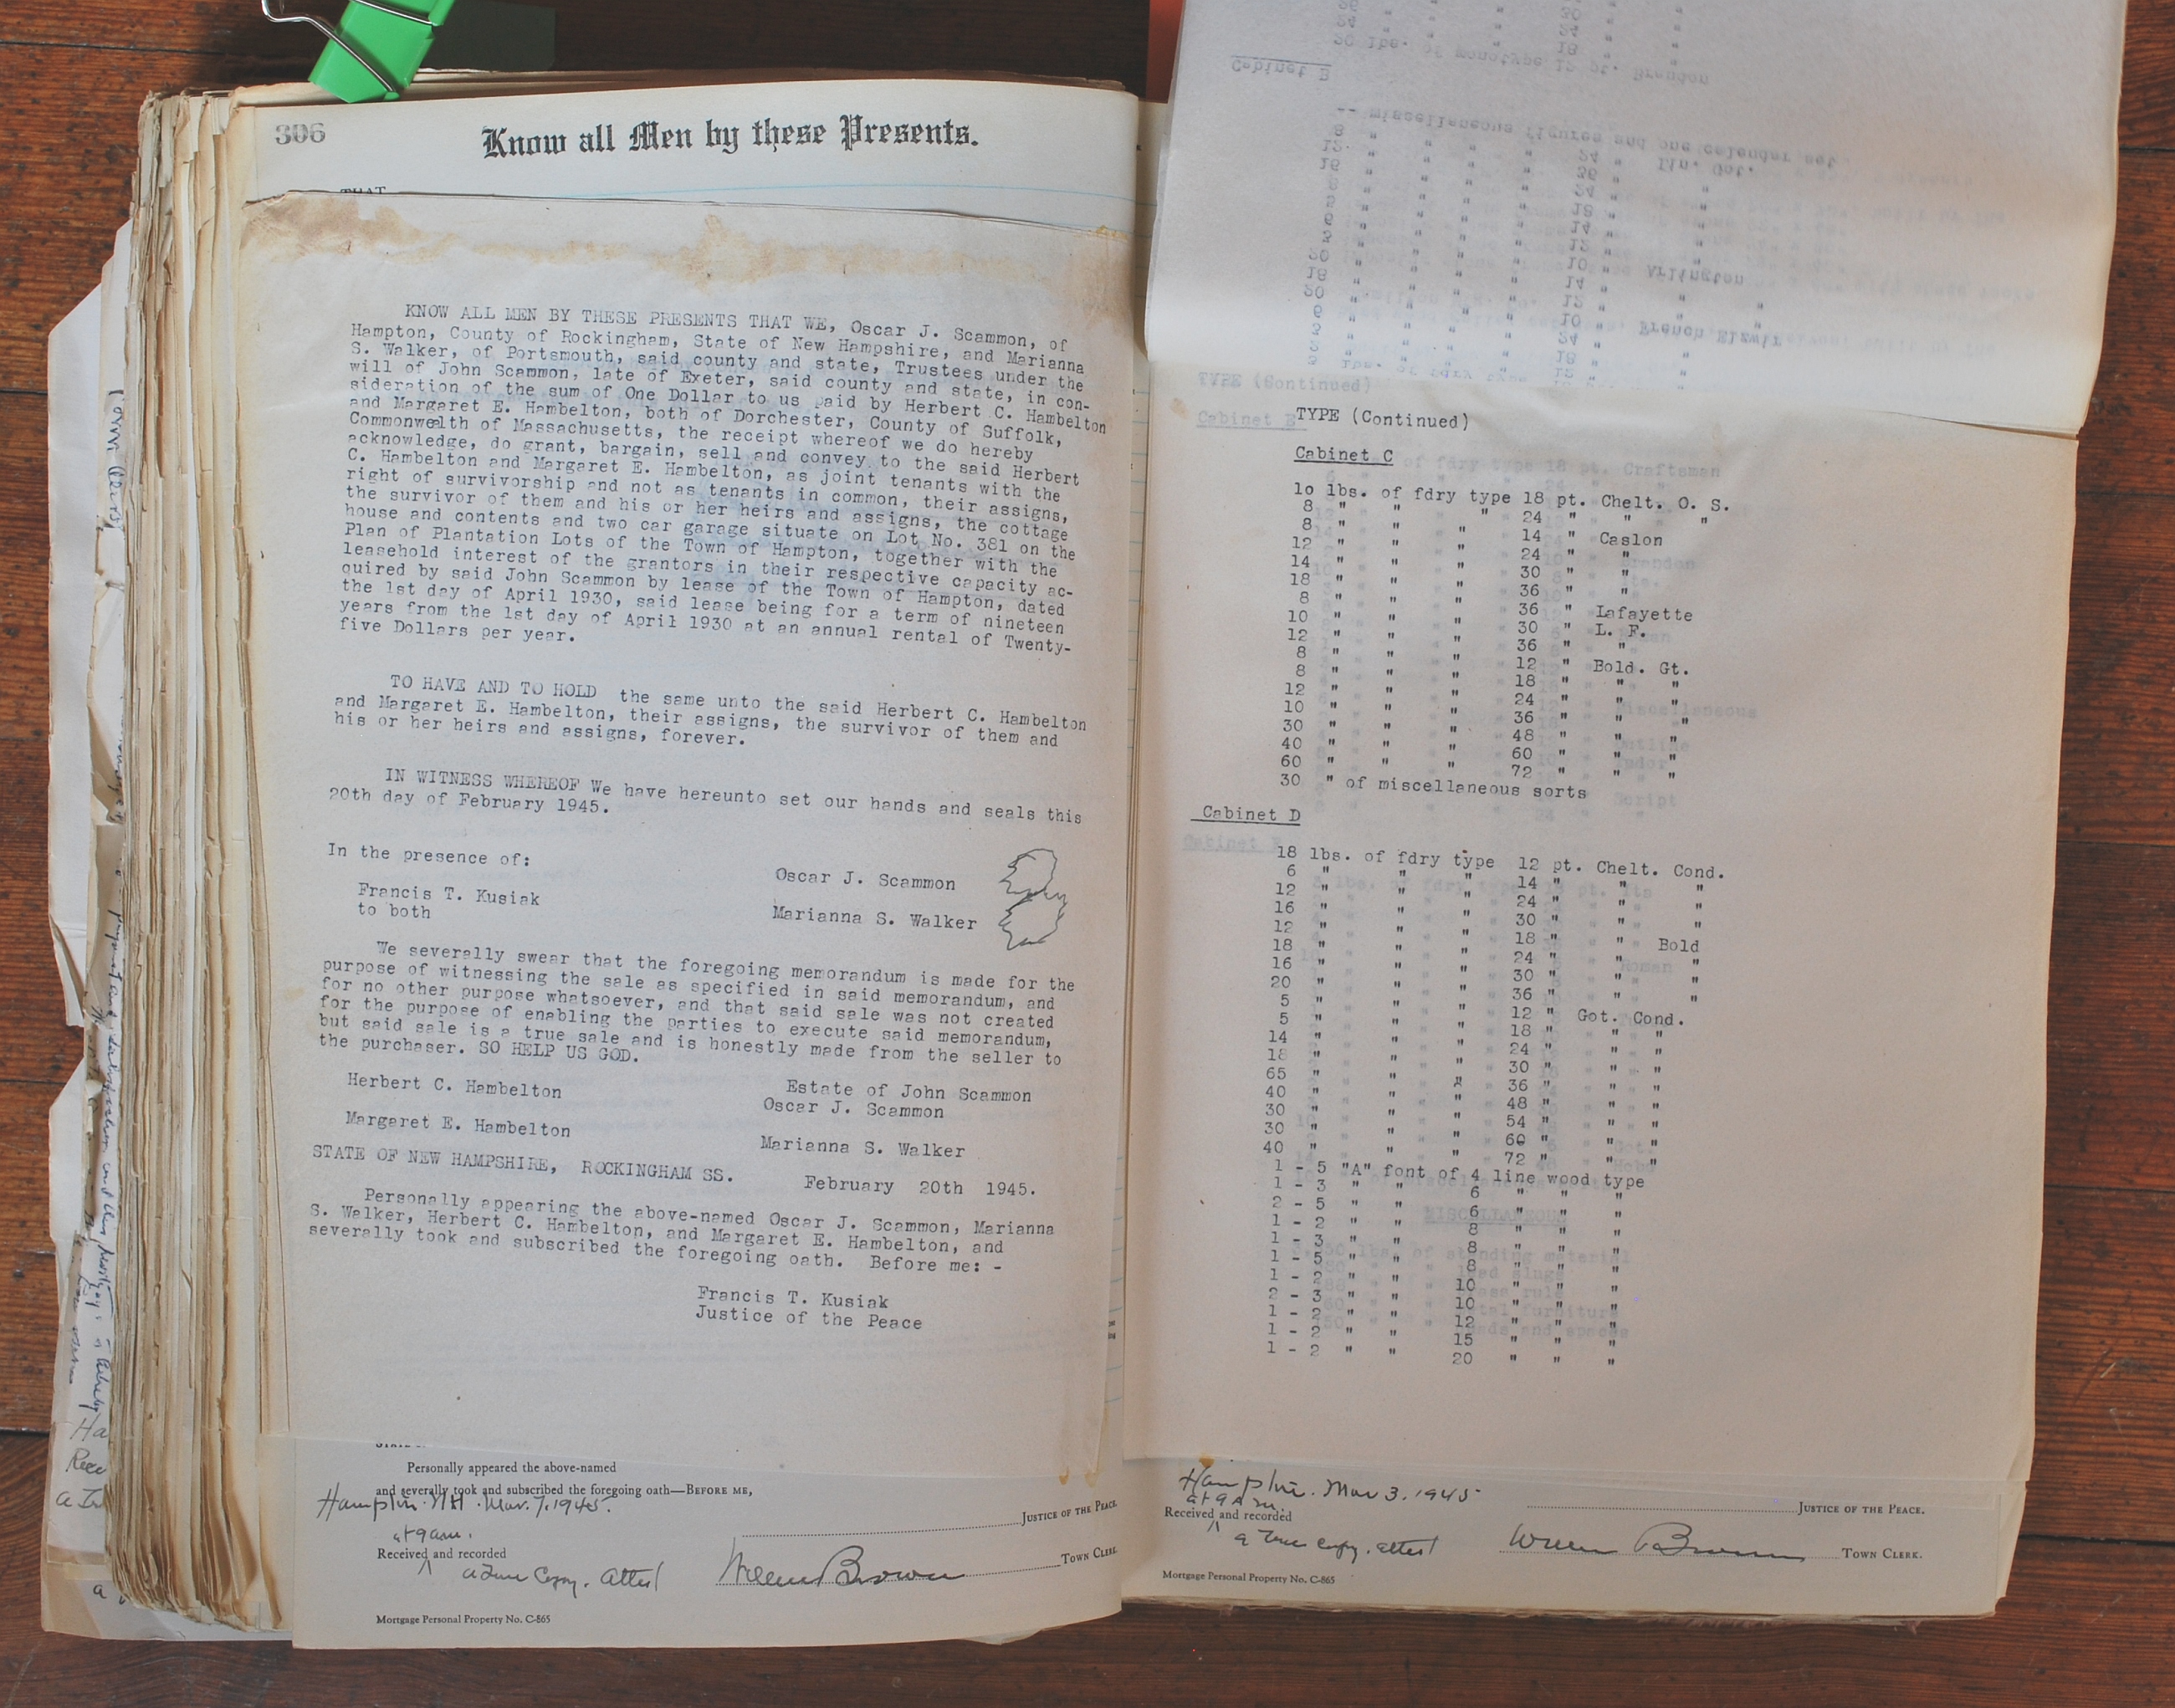 306
Know all Men by these Presents.
THAT
KNOW ALL MEN BY THESE PRESENTS THAT WE, Oscar J. Scammon, of
Hampton, County of Rockingham, State of New Hampshire, and Marianna
S. Walker, of Portsmouth, said county and state, Trustees under the
will of John Scammon, late of Exeter, said county and state, in con-
sideration of the sum of One Dollar to us paid by Herbert C. Hambelton
and Margaret E. Hambelton, both of Dorchester, County of Suffolk,
Commonwealth of Massachusetts, the receipt whereof we do hereby
acknowledge, do grant, bargain, sell and convey to the said Herbert
C. Hambelton and Margaret E. Hambelton, as joint tenants with the
right of survivorship and not as tenants in common, their assigns,
the survivor of them and his or her heirs and assigns, the cottage
house and contents and two car garage situate on Lot No. 381 on the
Plan of Plantation Lots of the Town of Hampton, together with the
leasehold interest of the grantors in their respective capacity ac-
quired by said John Scammon by lease of the Town of Hampton, dated
the 1st day of April 1930, said lease being for a term of nineteen
years from the 1st day of April 1930 at an annual rental of Twenty-
five Dollars per year.
TO HAVE AND TO HOLD the same unto the said Herbert C. Hambelton
and Margaret E. Hambelton, their assigns, the survivor of them and
his or her heirs and assigns, forever.
IN WITNESS WHEREOF We have hereunto set our hands and seals this
20th day of February 1945.
In the presence of:
Oscar J. Scammon
Francis T. Kusiak
to both
Marianna S. Walker
We severally swear that the foregoing memorandum is made for the
purpose of witnessing the sale as specified in said memorandum, and
for no other purpose whatsoever, and that said sale was not created
for the purpose of enabling the parties to execute said memorandum,
but said sale is a true sale and is honestly made from the seller to
the purchaser. SO HELP US GOD.
Herbert C. Hambelton
Estate of John Scammon
Oscar J. Scammon
Margaret E. Hambelton
Marianna S. Walker
STATE OF NEW HAMPSHIRE, ROCKINGHAM SS.
February 20th 1945.
Personally appearing the above-named Oscar J. Scammon, Marianna
S. Walker, Herbert C. Hambelton, and Margaret E. Hambelton, and
severally took and subscribed the foregoing oath. Before me: -
Francis T. Kusiak
Justice of the Peace
Personally appeared the above-named
and severally took and subscribed the foregoing oath—BEFORE ME,
Hampton. NH. Mar. 7. 1945.
JUSTICE OF THE PEACE.
at 9 am.
Received and recorded
a True Copy. attest
William Brown
TOWN CLERK.
Mortgage Personal Property No. C-865
TYPE (Continued)
Cabinet C
10 lbs. of fdry type 18 pt. Chelt. O. S.
8 " " " 24 " " "
8 " " " 14 " Caslon
12 " " " 24 " "
14 " " " 30 " "
18 " " " 36 " "
8 " " " 36 " Lafayette
10 " " " 30 " L. F.
12 " " " 36 " "
8 " " " 12 " Bold. Gt.
8 " " " 18 " " "
12 " " " 24 " " "
10 " " " 36 " " "
30 " " " 48 " " "
40 " " " 60 " " "
60 " " " 72 " " "
30 " of miscellaneous sorts
Cabinet D
18 lbs. of fdry type 12 pt. Chelt. Cond.
6 " " " 14 " " "
12 " " " 24 " " "
16 " " " 30 " " "
12 " " " 18 " " Bold
18 " " " 24 " " "
16 " " " 30 " " "
20 " " " 36 " " "
5 " " " 12 " Got. Cond.
5 " " " 18 " " "
14 " " " 24 " " "
18 " " " 30 " " "
65 " " " 36 " " "
40 " " " 48 " " "
30 " " " 54 " " "
30 " " " 60 " " "
40 " " " 72 " " "
1 - 5 "A" font of 4 line wood type
1 - 3 " " 6 " " "
2 - 5 " " 6 " " "
1 - 2 " " 8 " " "
1 - 3 " " 8 " " "
1 - 5 " " 8 " " "
1 - 2 " " 10 " " "
2 - 3 " " 10 " " "
1 - 2 " " 12 " " "
1 - 2 " " 15 " " "
1 - 2 " " 20 " " "
Hampton. Mar 3. 1945
at 9 A m.
JUSTICE OF THE PEACE.
Received and recorded
a True copy. attest
William Brown
TOWN CLERK.
Mortgage Personal Property No. C-865